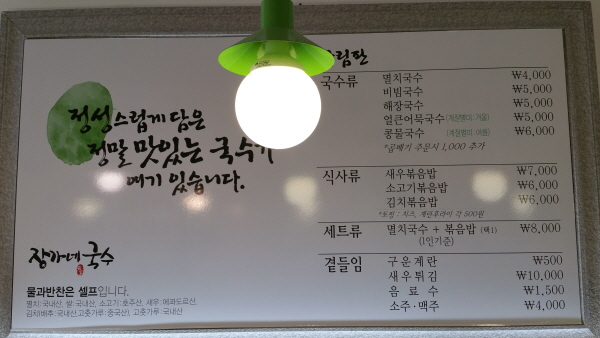 정성스럽게 담은
정말 맛있는 국수가
여기 있습니다.
장가네국수
물과반찬은 셀프입니다.
멸치:국내산, 쌀:국내산, 소고기:호주산, 새우:에콰도르산,
김치(배추:국내산,고춧가루:중국산), 고춧가루:국내산
림판
국수류 멸치국수 ₩4,000
비빔국수 ₩5,000
해장국수 ₩5,000
얼큰어묵국수 (계절별미:겨울) ₩5,000
콩물국수 (계절별미:여름) ₩6,000
*곱빼기 주문시 1,000 추가
식사류 새우볶음밥 ₩7,000
소고기볶음밥 ₩6,000
김치볶음밥 ₩6,000
*토핑 : 치즈, 계란후라이 각 500원
세트류 멸치국수 + 볶음밥 (택1) ₩8,000
(1인기준)
곁들임 구운계란 ₩500
새우튀김 ₩10,000
음료수 ₩1,500
소주·맥주 ₩4,000